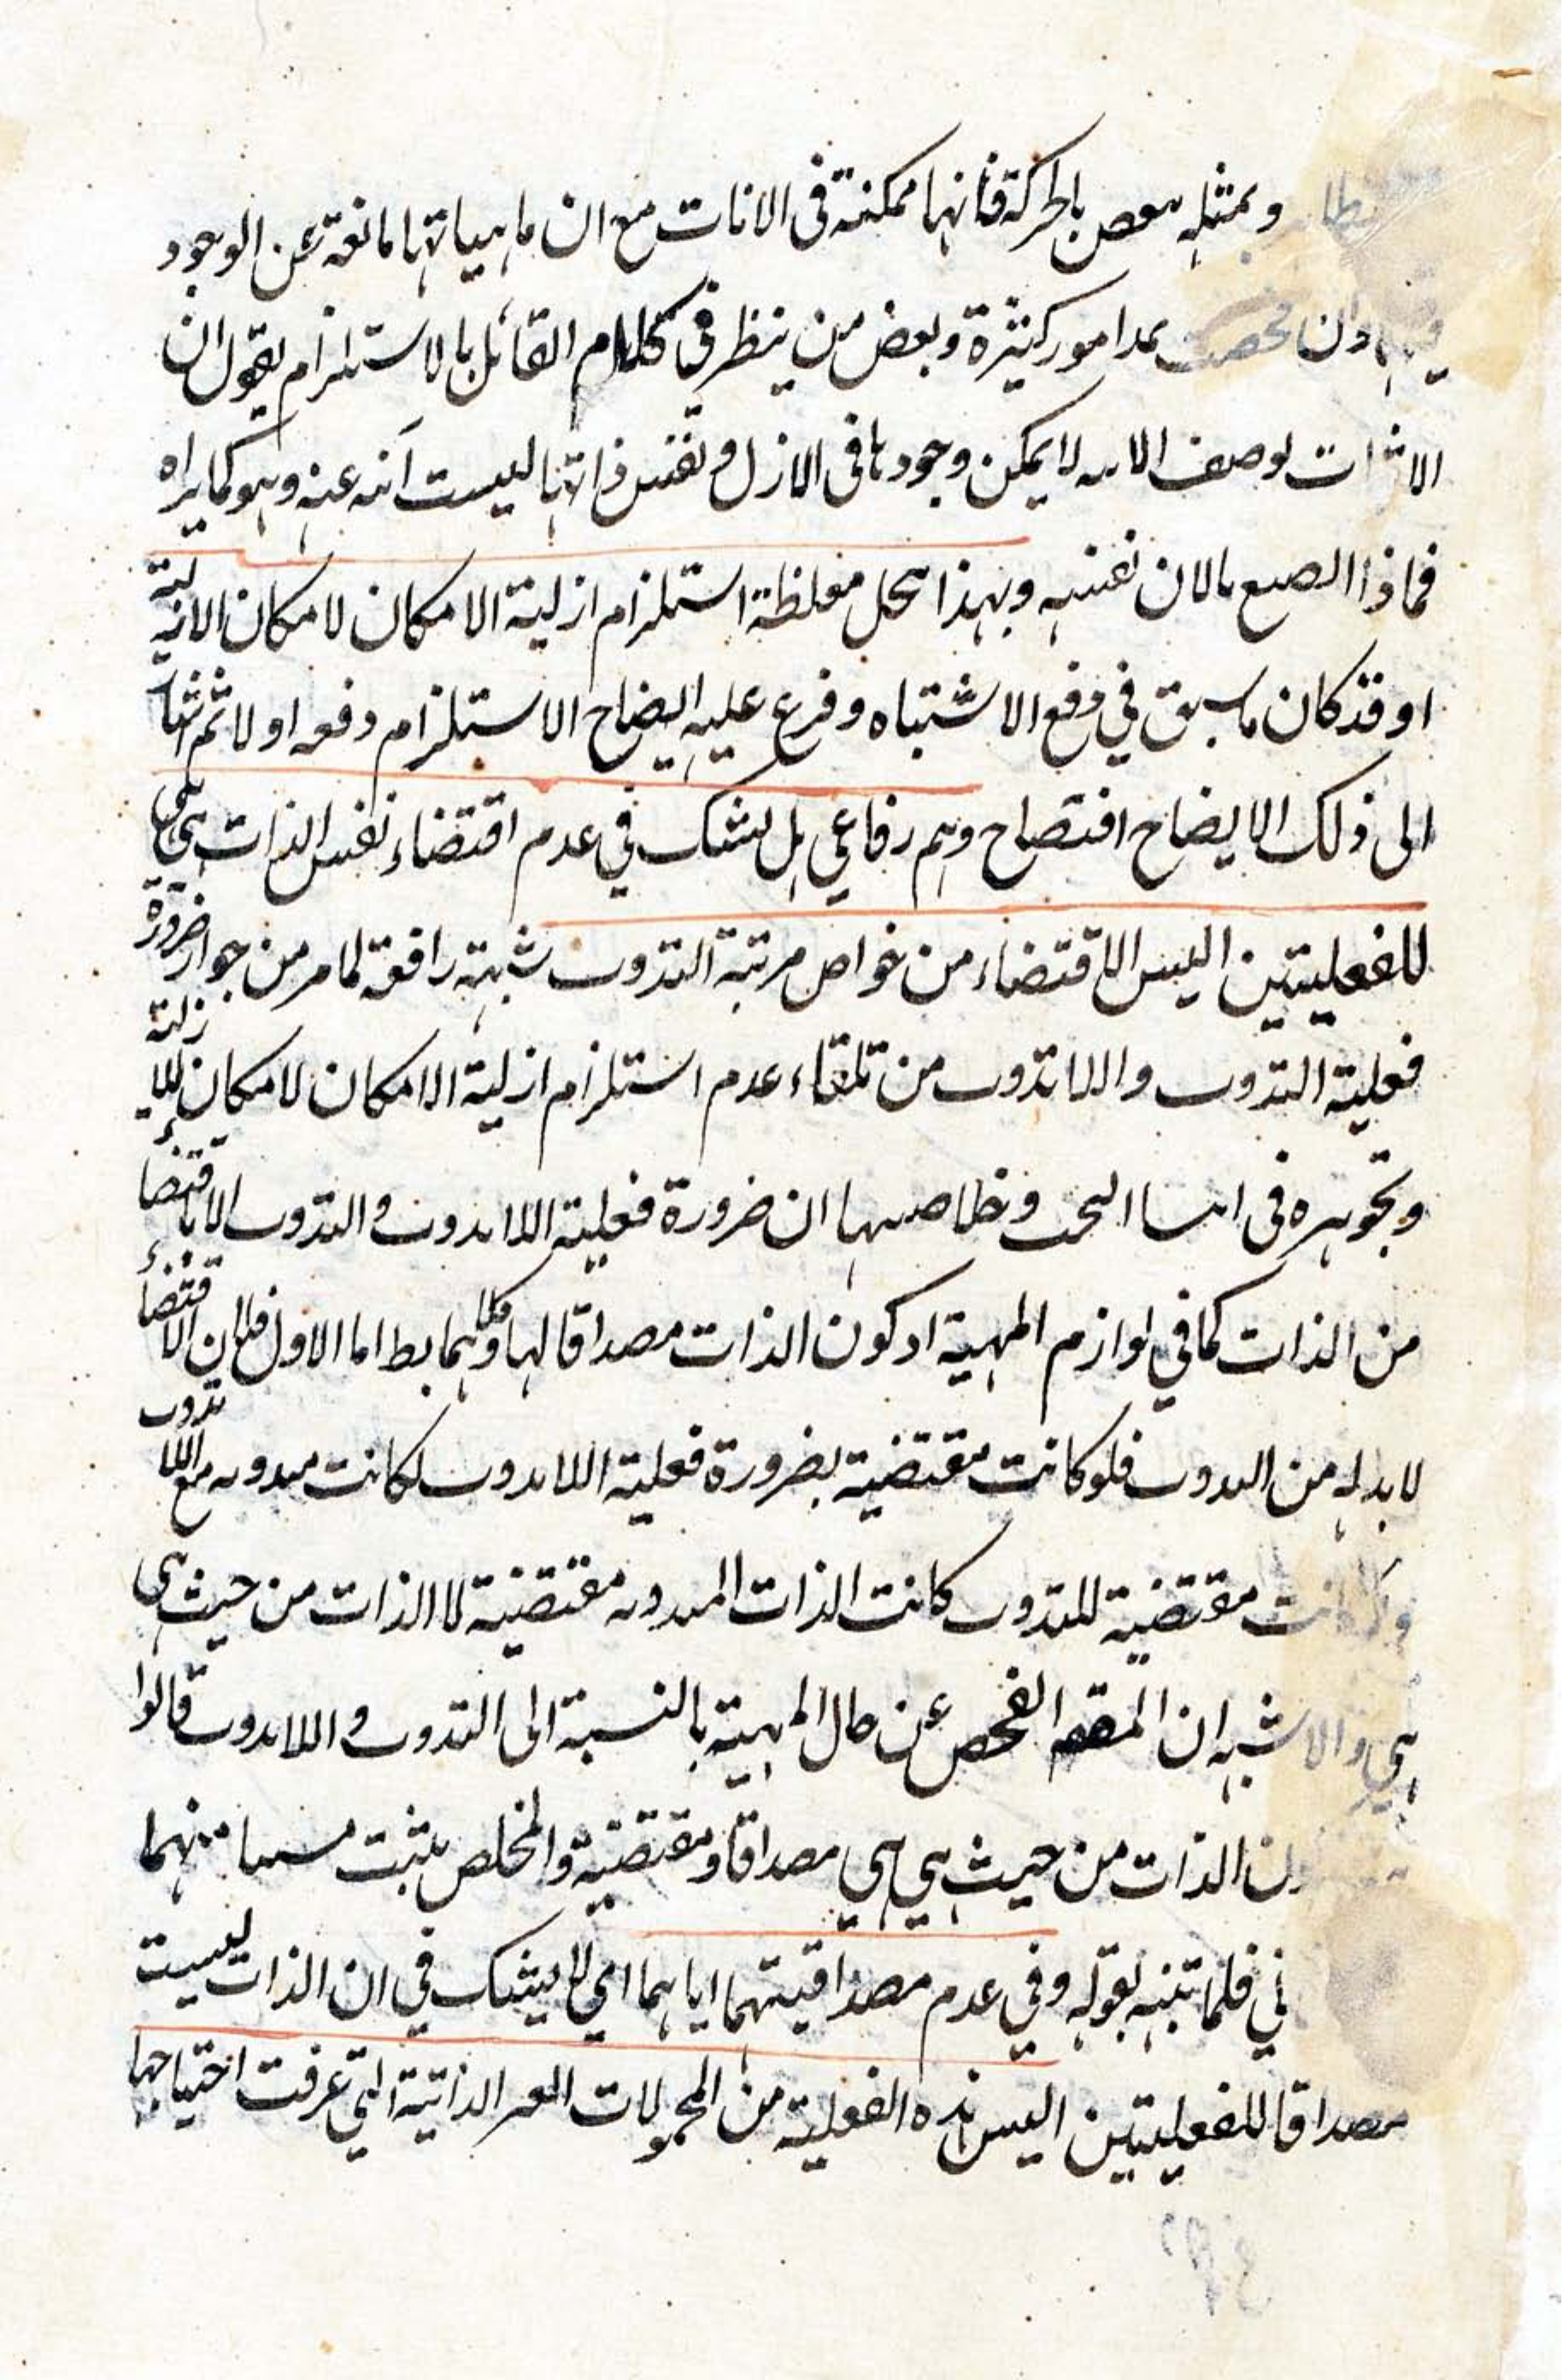 وبمثله بالحركة فانها ممكنة فى الانات مع ان ماهياتها مانعة عن الوجود
امور كثيرة وبعض من ينظر فى كلام القائل بالاستلزام يقول ان
لا يمكن وجودها فى الازل ونفس ذاتها ليست آبية عنه وهو كما يراه
وبهذا ينحل مغلظة استلزام ازلية الامكان لامكان الازلية
او قد كان ما سبق في دفع الاشتباه وفرع عليه ايضاح الاستلزام دفعه اولا ثم
الى ذلك الايضاح افتضاح وهم رفاعي بل يشك في عدم اقتضاء نفس الذات هي هي
للفعليتين اليس الاقتضاء من خواص مرتبة التذوت شبهة رافعة لما مر من جواز ضرورة
فعلية التذوت واللاتذوت من تلقاء عدم استلزام ازلية الامكان لامكان الازلية
وتجوهره فى وخلاصتها ان ضرورة فعلية اللاتذوت والتذوت لاقتضاء
من الذات كما في لوازم المهية او كون الذات مصداقا لها وكلاهما بط اما الاول فلان الاقتضاء
لا بد له من التذوت فلو كانت مقتضية بضرورة فعلية اللاتذوت لكانت متذوتة مع اللاتذوت
ولو كانت مقتضية للتذوت كانت الذات المتذوتة مقتضية لا الذات من حيث هي
هي والاشبه ان المقصد الفحص عن حال المهية بالنسبة الى التذوت واللاتذوت قالوا
الذات من حيث هي هي مصداقا ومقتضية والمخلص يثبت منهما
فلما تنبه بقوله وفي عدم مصداقيتهما اياهما اي لا يشك في ان الذات ليست
مصداقا للفعليتين اليس هذه الفعلية من المحمولات الغير الذاتية التي عرفت احتياجها